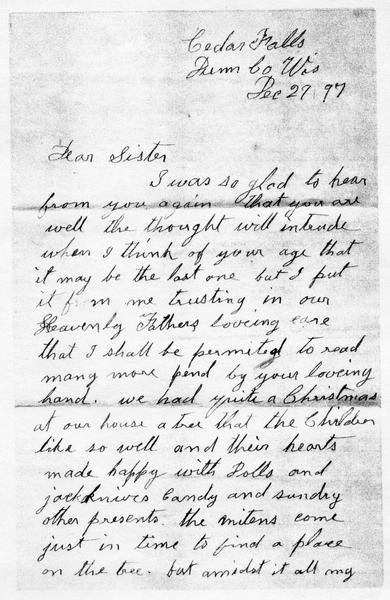 Cedar Falls
Dunn Co Wis
Dec 27 97
Dear Sister
I was so glad to hear
from you again that you are
well the thought will intrude
when I think of your age that
it may be the last one but I put
it from me trusting in our
Heavenly Fathers loveing care
that I shall be permited to read
many more pend by your loveing
hand. we had quite a Christmas
at our house a tree that the Children
like so well and their hearts
made happy with Dolls and
jackknives Candy and sundry
other presents. the mitens come
just in time to find a place
on the tee. but amidst it all my